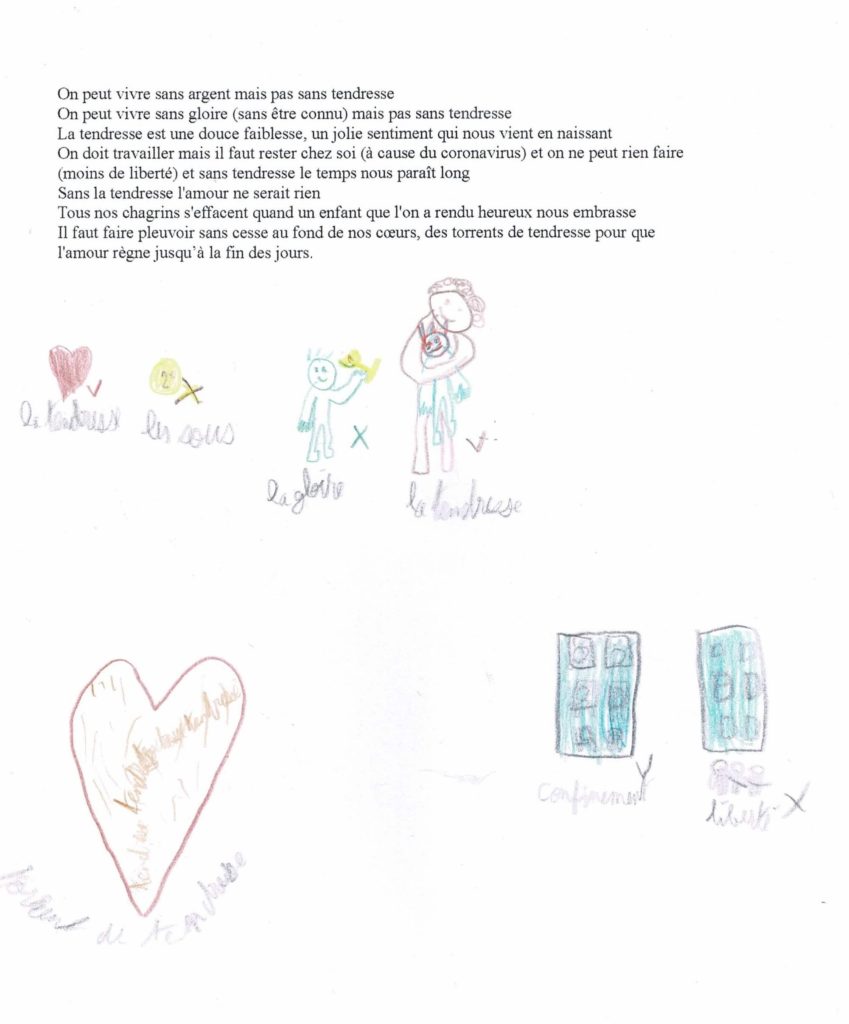 On peut vivre sans argent mais pas sans tendresse
On peut vivre sans gloire (sans être connu) mais pas sans tendresse
La tendresse est une douce faiblesse, un jolie sentiment qui nous vient en naissant
On doit travailler mais il faut rester chez soi (à cause du coronavirus) et on ne peut rien faire
(moins de liberté) et sans tendresse le temps nous paraît long
Sans la tendresse l'amour ne serait rien
Tous nos chagrins s'effacent quand un enfant que l'on a rendu heureux nous embrasse
Il faut faire pleuvoir sans cesse au fond de nos cœurs, des torrents de tendresse pour que
l'amour règne jusqu'à la fin des jours.
2
la tendresse
les sous
la gloire
la tendresse
confinement
liberté
de tendresse